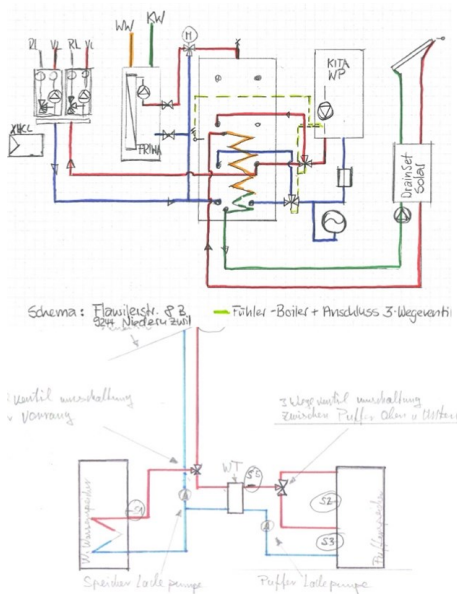 WW KW
RL VL RL VL
M
KITA
WP
FRIWA
DrainSet
Solar
Schema: Flawilerstr. 8 B
9244 Niederuzwil
Fühler-Boiler + Anschluss 3-Wegeventil
ventil umschaltung
Vorrang
3 Wege ventil umschaltung
zwischen Puffer Oben u Unten
WT
S5
S1
S2
S3
Speicher Ladepumpe
Puffer Ladepumpe